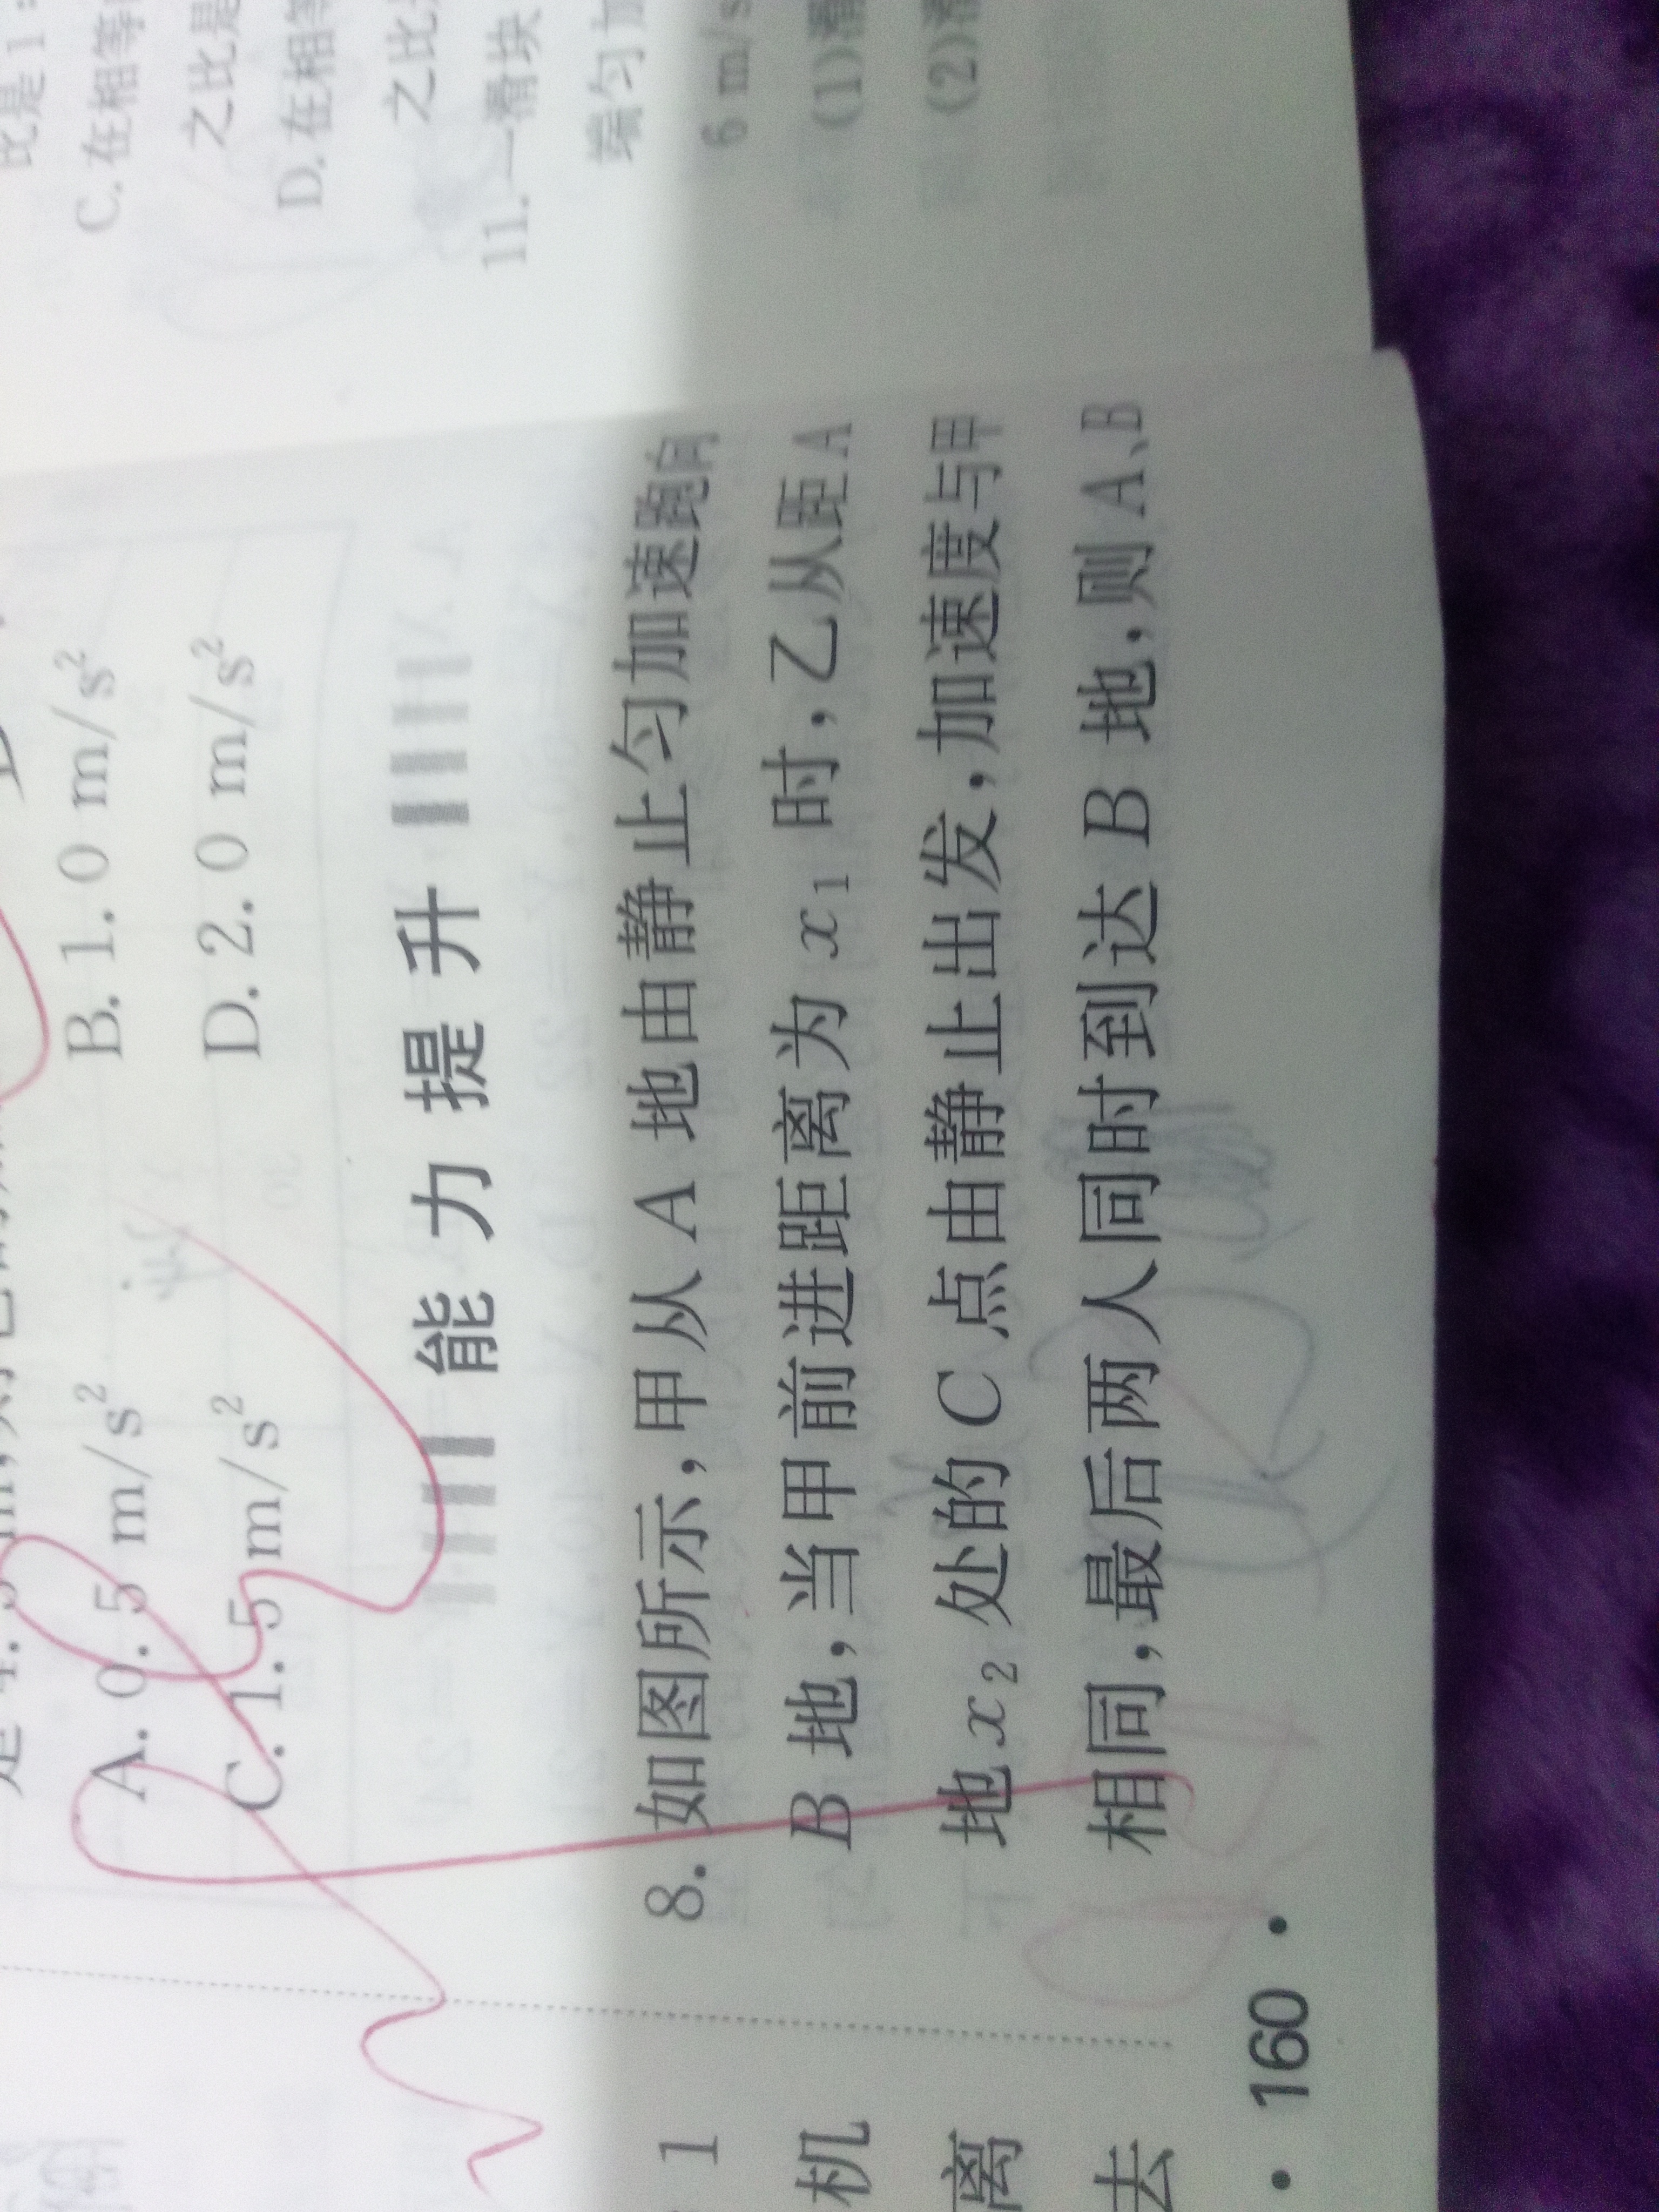 A. 0. 5 m/s²
B. 1. 0 m/s²
C. 1. 5 m/s²
D. 2. 0 m/s²
能力提升
8. 如图所示,甲从 A 地由静止匀加速跑向
B 地,当甲前进距离为 x₁ 时,乙从距 A
地 x₂ 处的 C 点由静止出发,加速度与甲
相同,最后两人同时到达 B 地,则 A、B
· 160 ·
1
机
离
去
比是 1
C. 在相等
之比是
D. 在相等
之比
11. 一滑块
端匀加
6 m/s
(1)
(2)